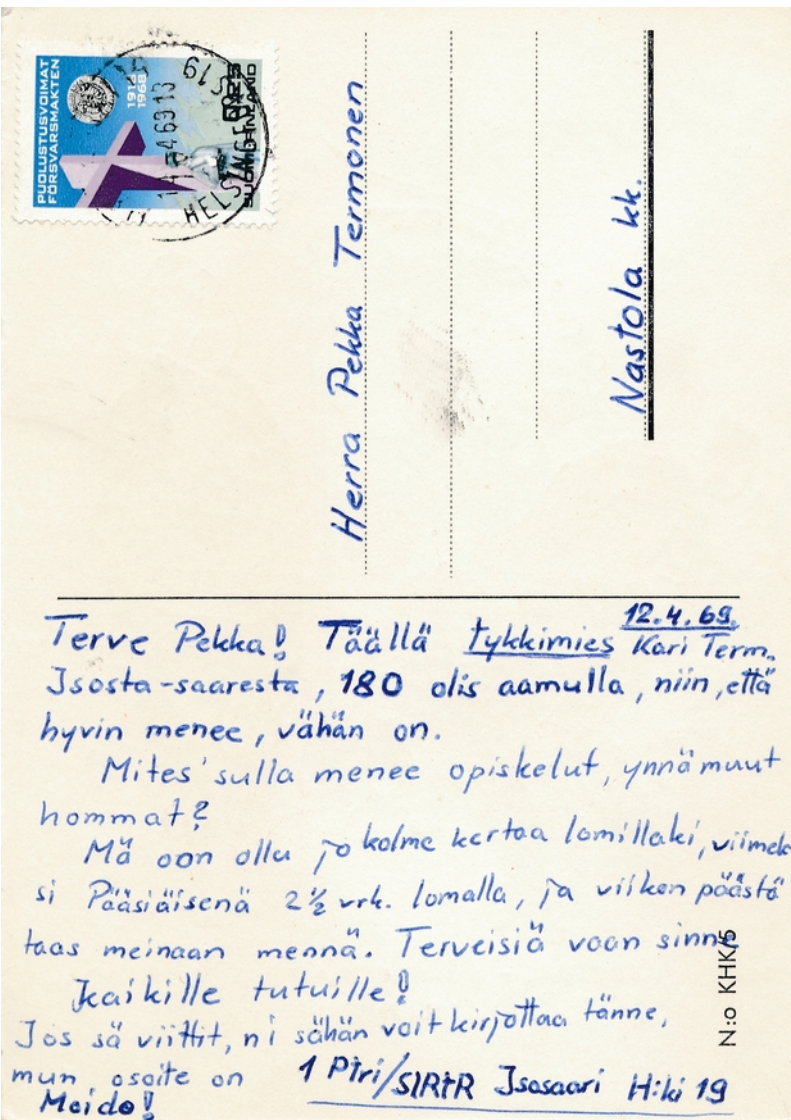 PUOLUSTUSVOIMAT
FÖRSVARSMAKTEN
1918
1968
0,25
SUOMI FINLAND
HELSINGFORS
19
Herra Pekka Termonen
Nastola kk.
12.4.69.
Terve Pekka! Täällä tykkimies Kari Term.
Isosta-saaresta, 180 olis aamulla, niin, että
hyvin menee, vähän on.
Mites' sulla menee opiskelut, ynnämuut
hommat?
Mä oon ollu jo kolme kertaa lomillaki, viimek
si Pääsiäisenä 2½ vrk. lomalla, ja viikon päästä
taas meinaan mennä. Terveisiä vaan sinne
kaikille tutuille!
Jos sä viittit, ni sähän voit kirjottaa tänne,
mun osoite on 1 Ptri/SlRtR Isosaari H:ki 19
Moido!
N:o KHK/5